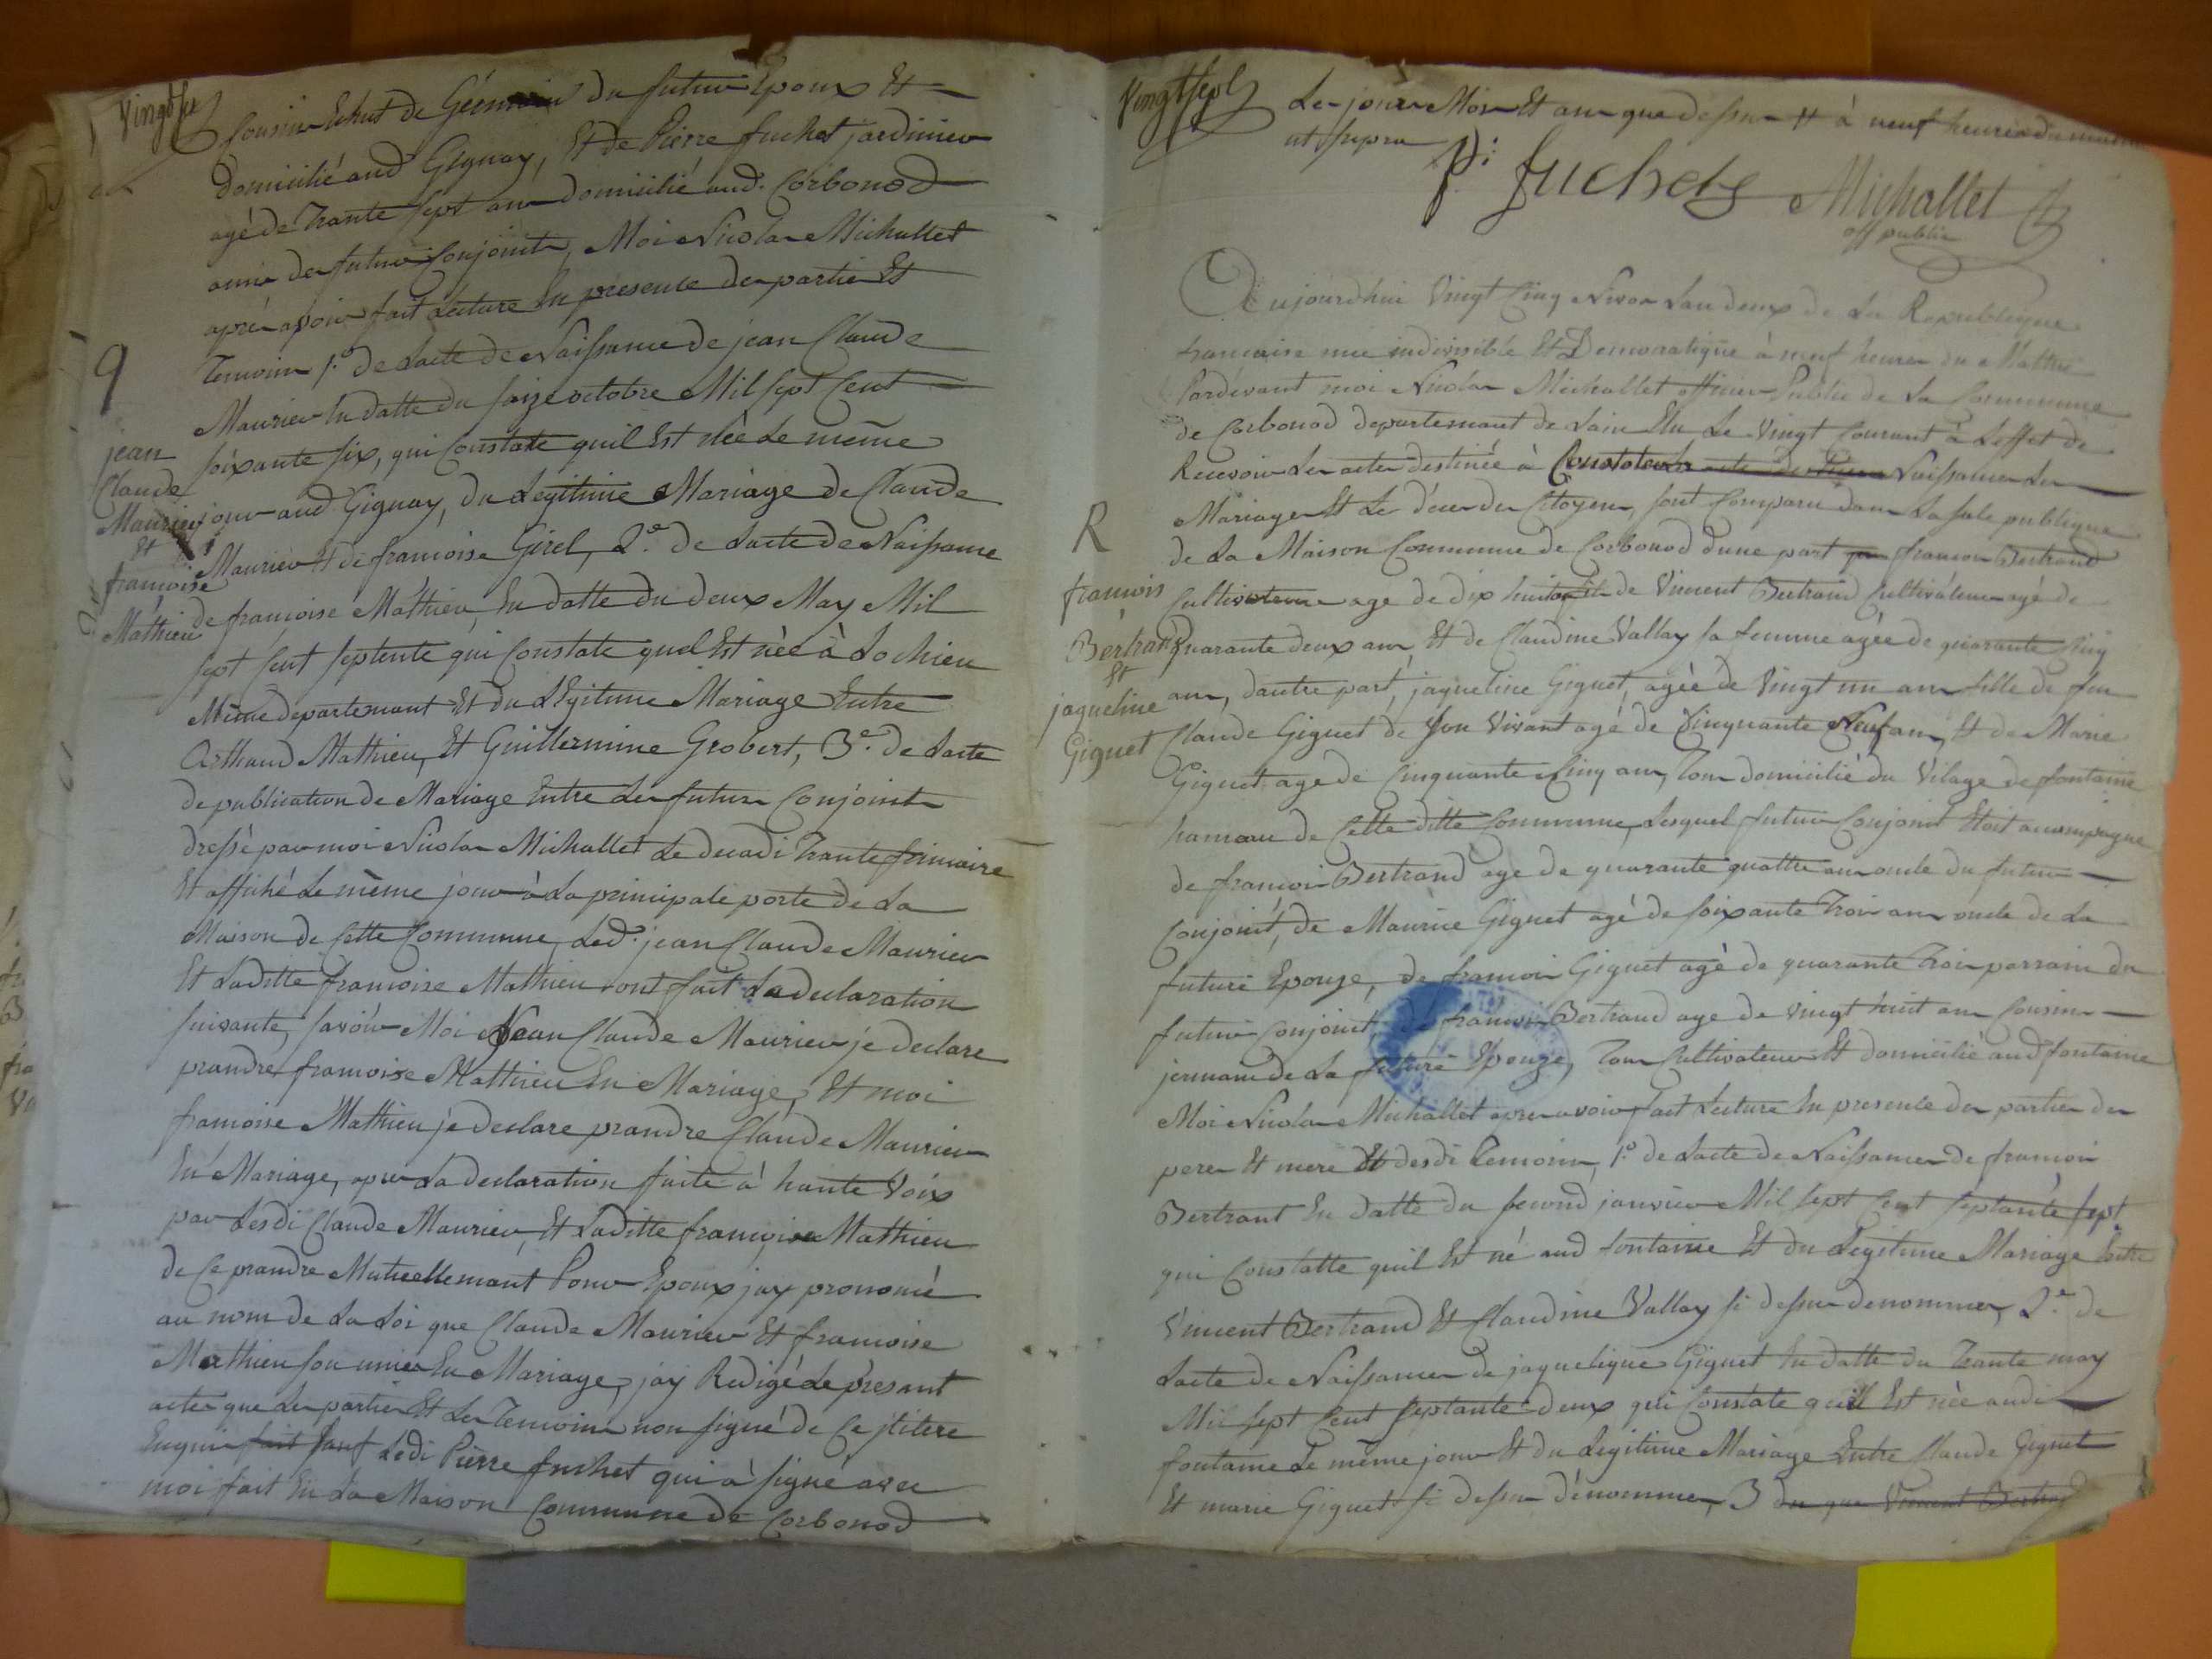 Vingt six
Cousin du futur Epoux Et
domicilié aud Gignay, Et de Pierre fuchet jardinier
agé de Trante sept ans domicilié aud. Corbonod
amis des futurs Conjoints, Moi Nicolas Michallet
aprés avoir fait Lecture En présence des parties Et
Temoins 1.º de Lacte de Naissance de jean Claude
Maurier En datte du saize octobre Mil sept Cent
soixante six, qui Constate quil Est née Le même
jour aud Gignay, du Legitime Mariage de Claude
Maurier Et de francoise Girel, 2.º de Lacte de Naissance
de francoise Mathieu, En datte du deux May Mil
sept Cent septente qui Constate quel Est née à Lochieu
Même departemant Et du LEgitime Mariage Entre
Arthaud Mathieu, Et Guillermine Grobert, 3.º de Lacte
de publication de Mariage Entre Les futurs Conjoints
dressé par moi Nicolas Michallet Le decadi Trante frimaire
Et affiché Le même jour à La principale porte de La
Maison de Cette Commune, Led. jean Claude Maurier
Et Laditte francoise Mathieu ont fait La declaration
suivante, savoir Moi Jean Claude Maurier je declare
prandre francoise Mathieu En Mariage, Et moi
francoise Mathieu je declare prandre Claude Maurier
En Mariage, apres La declaration faite à haute Voix
par Lesdi Claude Maurier, Et Laditte francoise Mathieu
de Ce prandre Mutuellemant Pour Epoux jay prononcé
au nom de La Loi que Claude Maurier Et francoise
Mathieu son unies En Mariage, jay Redigé Le présant
acte que Les parties Et Les Temoins non signé de Ce
Enquis fait sauf Ledi Pierre fuchet qui à signé avec
moi fait En La Maison Commune de Corbonod
9
jean
Claude
Maurier
Et
francoise
Mathieu
Vingt sept
Les jour Mois Et an que dessus Et à neuf heures du matin
ut supra
P: fuchet Michallet
off public
Aujourdhui Vingt Cinq Nivos Lan deux de La Republique
francaise une indivisible Et Democratique à neuf heures du Matin
Pardevant moi Nicolas Michallet officier Public de La Commune
de Corbonod departemant de Lain Elu Le Vingt Courant à Leffet de
Recevoir Les actes destinée à Constater Naissances Les
Mariages Et Le déces des Citoyens, sont Comparu dans La sale publique
de La Maison Commune de Corbonod dune part francois Bertrand
Cultivateur age de dix huit ans fils de Vincent Bertrand Cultivateur agé de
Quarante deux ans Et de Claudine Vallay sa femme agée de quarante Cinq
ans, dautre part, jaqueline Giguet, agée de Vingt un ans fille de feu
Claude Giguet de son Vivant agé de Cinquante Neuf ans, Et de Marie
Giguet age de Cinquante Cinq ans, Tous domicilié du Vilage de fontaine
hameau de Cette ditte Commune, Lesquel futur Conjoint Etoit accompagne
de francois Bertrand age de quarante quattre ans oncle du futur
Conjoint, de Maurice Giguet agé de soixante Trois ans oncle de La
future Epouze, de francois Giguet agé de quarante Trois parrain du
futur Conjoint, de francois Bertrand age de Vingt huit ans Cousin
jermain de La future Epouze, Tous Cultivateur Et domicilié aud fontaine
Moi Nicolas Michallet apres avoir fait Lecture En presence des parties des
peres Et mere Et desdi Temoins, 1.º de Lacte de Naissances de francois
Bertrant En datte du second janvier Mil sept Cent septante sept
qui Constatte quil Est né aud fontaine Et du Legitime Mariage Entre
Vincent Bertrand Et Claudine Vallay si dessus denommes, 2.º de
Lacte de Naissances de jaqueligne Giguet En datte du Trante may
Mil sept Cent septante deux qui Constate quill Est née audi
fontaine Le même jour Et du Legitime Mariage Entre Claude Giguet
Et marie Giguet si dessus dénommes, 3 du que Vincent Bertrand
R
francois
Bertrand
Et
jaqueline
Giguet